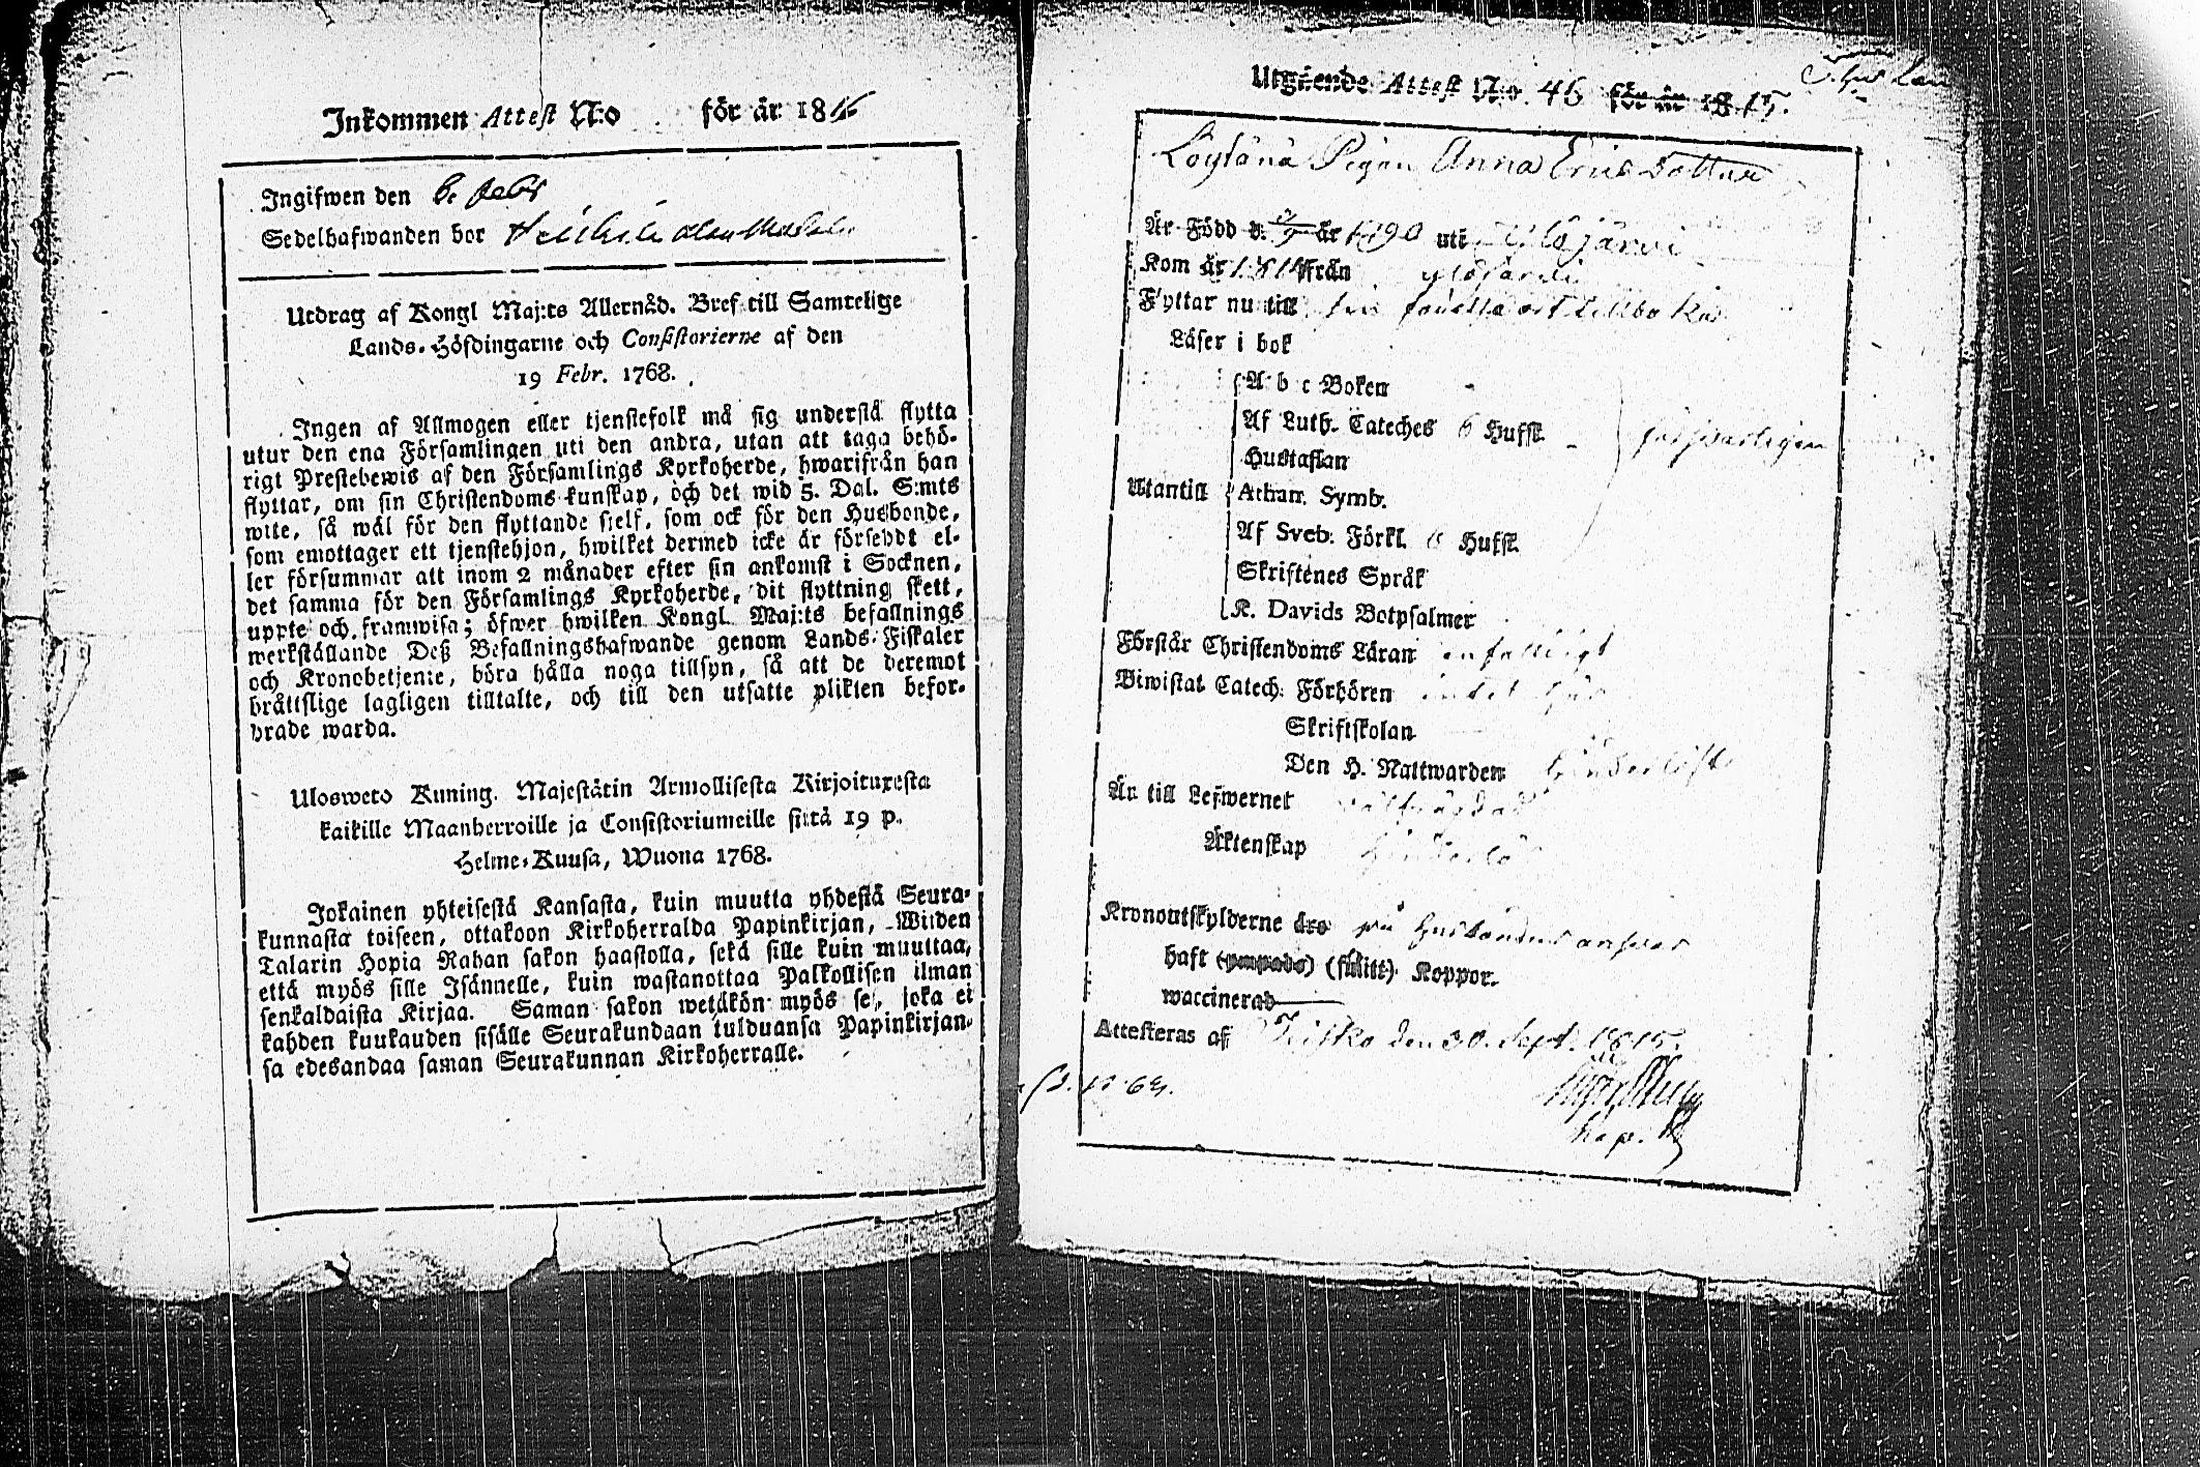 Inkommen Attest N:o för år 1816
Ingifwen den 6. Febr
Sedelhafwanden bor
Utdrag af Kongl Maj:ts Allernåd. Bref till Samtelige
Lands-Höfdingarne och Consistorierne af den
19 Febr. 1768.
Ingen af Allmogen eller tjenstefolk må sig understå flytta
utur den ena Församlingen uti den andra, utan att taga behö-
rigt Prestebewis af den Församlings Kyrkoherde, hwarifrån han
flyttar, om sin Christendoms-kunskap, och det wid 5. Dal. S:mts
wite, så wäl för den flyttande sielf, som ock för den Husbonde,
som emottager ett tjenstehjon, hwilket dermed icke är försedt el-
ler försummar att inom 2 månader efter sin ankomst i Socknen,
det samma för den Församlings Kyrkoherde, dit flyttning skett,
uppte och framwisa; öfwer hwilken Kongl Maj:ts befallnings
werkställande Deß Befallningshafwande genom Lands-Fiskaler
och Kronobetjente, böra hålla noga tillsyn, så att de deremot
bråttslige lagligen tilltalte, och till den utsatte plikten befor-
drade warda.
Ulosweto Kuning. Majestätin Armollisesta Kirjoituxesta
kaikille Maanherroille ja Consistoriumeille siitä 19 p.
Helme-Kuusa, Wuona 1768.
Jokainen yhteisestä Kansasta, kuin muutta yhdestä Seura-
kunnasta toiseen, ottakoon Kirkoherralda Papinkirjan, Wiiden
Talarin Hopia Rahan sakon haastolla, sekä sille kuin muuttaa,
että myös sille Isännelle, kuin wastanottaa Palkollisen ilman
senkaldaista Kirjaa. Saman sakon wetäkön myös se, joka ei
kahden kuukauden sisälle Seurakundaan tulduansa Papinkirjan-
sa edesandaa saman Seurakunnan Kirkoherralle.
Utgående Attest N:o 46 för år 1815.
Löytänä Pigan Anna Ericsdotter
Är Född d. år 1790 uti Ylöjärvi
Kom år 1814 från Ylöjärvi
Flyttar nu till tillbaka
Läser i bok
A b c Boken
Af Luth. Cateches 6 Hufst. försvarligen
Hustaflan
Utantill Athan. Symb.
Af Sveb. Förkl. 6 Hufst.
Skriftenes Språk
K. Davids Botpsalmer
Förstår Christendoms Läran enfalligt
Biwistat Catech. Förhören intet här
Skriftskolan
Den H. Nattwarden hinderlöst
Är till Lefwernet wälfrägdad
Äktenskap hinderlös
Kronoutskylderne äro på husbondens answar
haft (ympade) (fålitt) Koppor.
waccinerad
Attesteras af Kisko den 30. Sept. 1815.